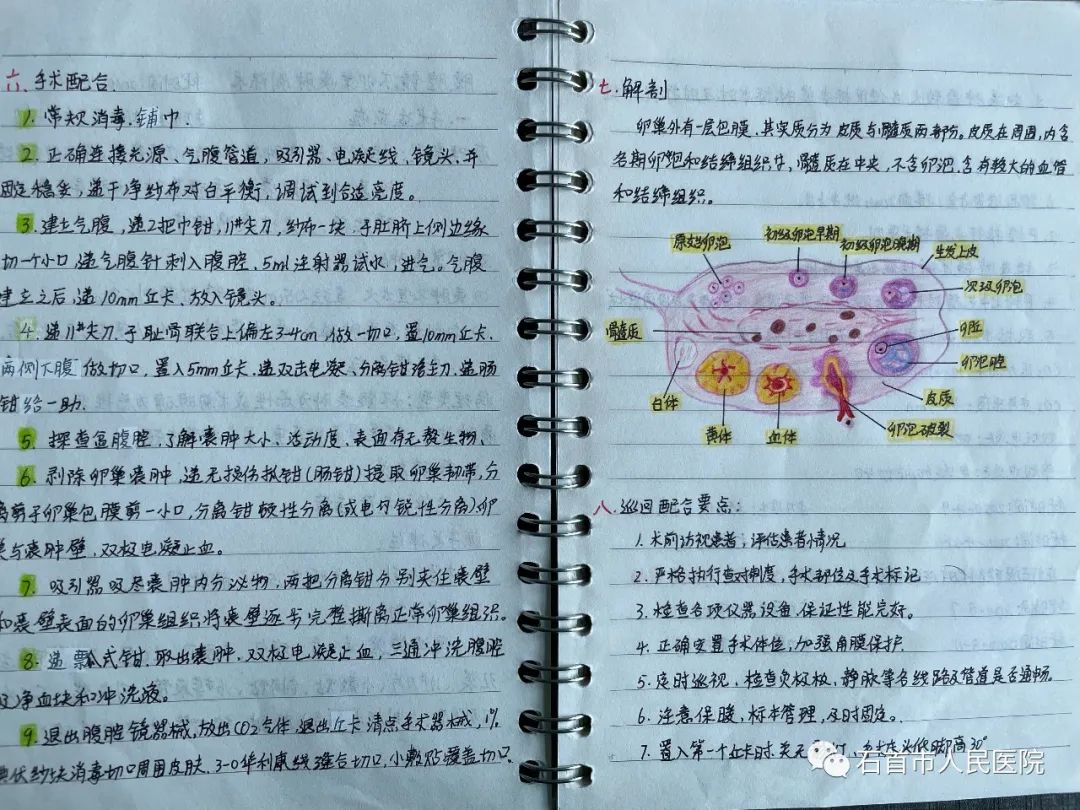 六、手术配合.
1. 常规消毒.铺巾.
2. 正确连接光源、气腹管道,吸引器、电凝线,镜头,并
固定稳妥,递干净纱布对白平衡,调试到合适亮度。
3. 建立气腹,递2把巾钳,11#尖刀,纱布一块.于肚脐上侧边缘
切一个小口.递气腹针刺入腹腔,5ml注射器试水,进气。气腹
建立之后,递10mm丘卡,放入镜头。
4. 递11#尖刀.于耻骨联合上偏左3-4cm.做一切口,置10mm丘卡.
两侧下腹做切口,置入5mm丘卡.递双击电凝、分离钳给主刀.递肠
钳给一助.
5. 探查盆腹腔,了解囊肿大小、活动度、表面有无赘生物、
6. 剥除卵巢囊肿,递无损伤抓钳(肠钳)提取卵巢韧带,分
离剪于卵巢包膜剪一小口,分离钳顿性分离(或电勾锐性分离)卵
巢与囊肿壁,双极电凝止血。
7. 吸引器吸尽囊肿内分泌物,两把分离钳分别夹住囊壁
和囊壁表面的卵巢组织将囊壁逐步完整撕离正常卵巢组织。
8. 递瓢瓜式钳.取出囊肿.双极电凝止血,三通冲洗腹腔
净血块和冲洗液。
9. 退出腹腔镜器械,放出CO2气体.退出丘卡清点手术器械,1%
碘伏纱块消毒切口周围皮肤.3-0华利康线缝合切口,小敷贴覆盖切口.
七.解剖
卵巢外有一层包膜,其实质分为皮质与髓质两部分。皮质在周围,内含
各期卵泡和结缔组织等,髓质在中央,不含卵泡,含有较大的血管
和结缔组织。
原始卵泡
初级卵泡早期
初级卵泡晚期
生发上皮
次级卵泡
髓质
卵丘
卵泡腔
白体
黄体
血体
卵泡破裂
皮质
八.巡回配合要点:
1. 术前访视患者,评估患者情况
2. 严格执行查对制度,手术部位及手术标记
3. 检查各项仪器设备.保证性能完好。
4. 正确安置手术体位,加强角膜保护.
5. 定时巡视、检查负极板,静脉等各线路及管道是否通畅.
6. 注意保暖,标本管理,及时固定。
7. 置入第一个丘卡时.关无 灯, 头低脚高30°
石首市人民医院